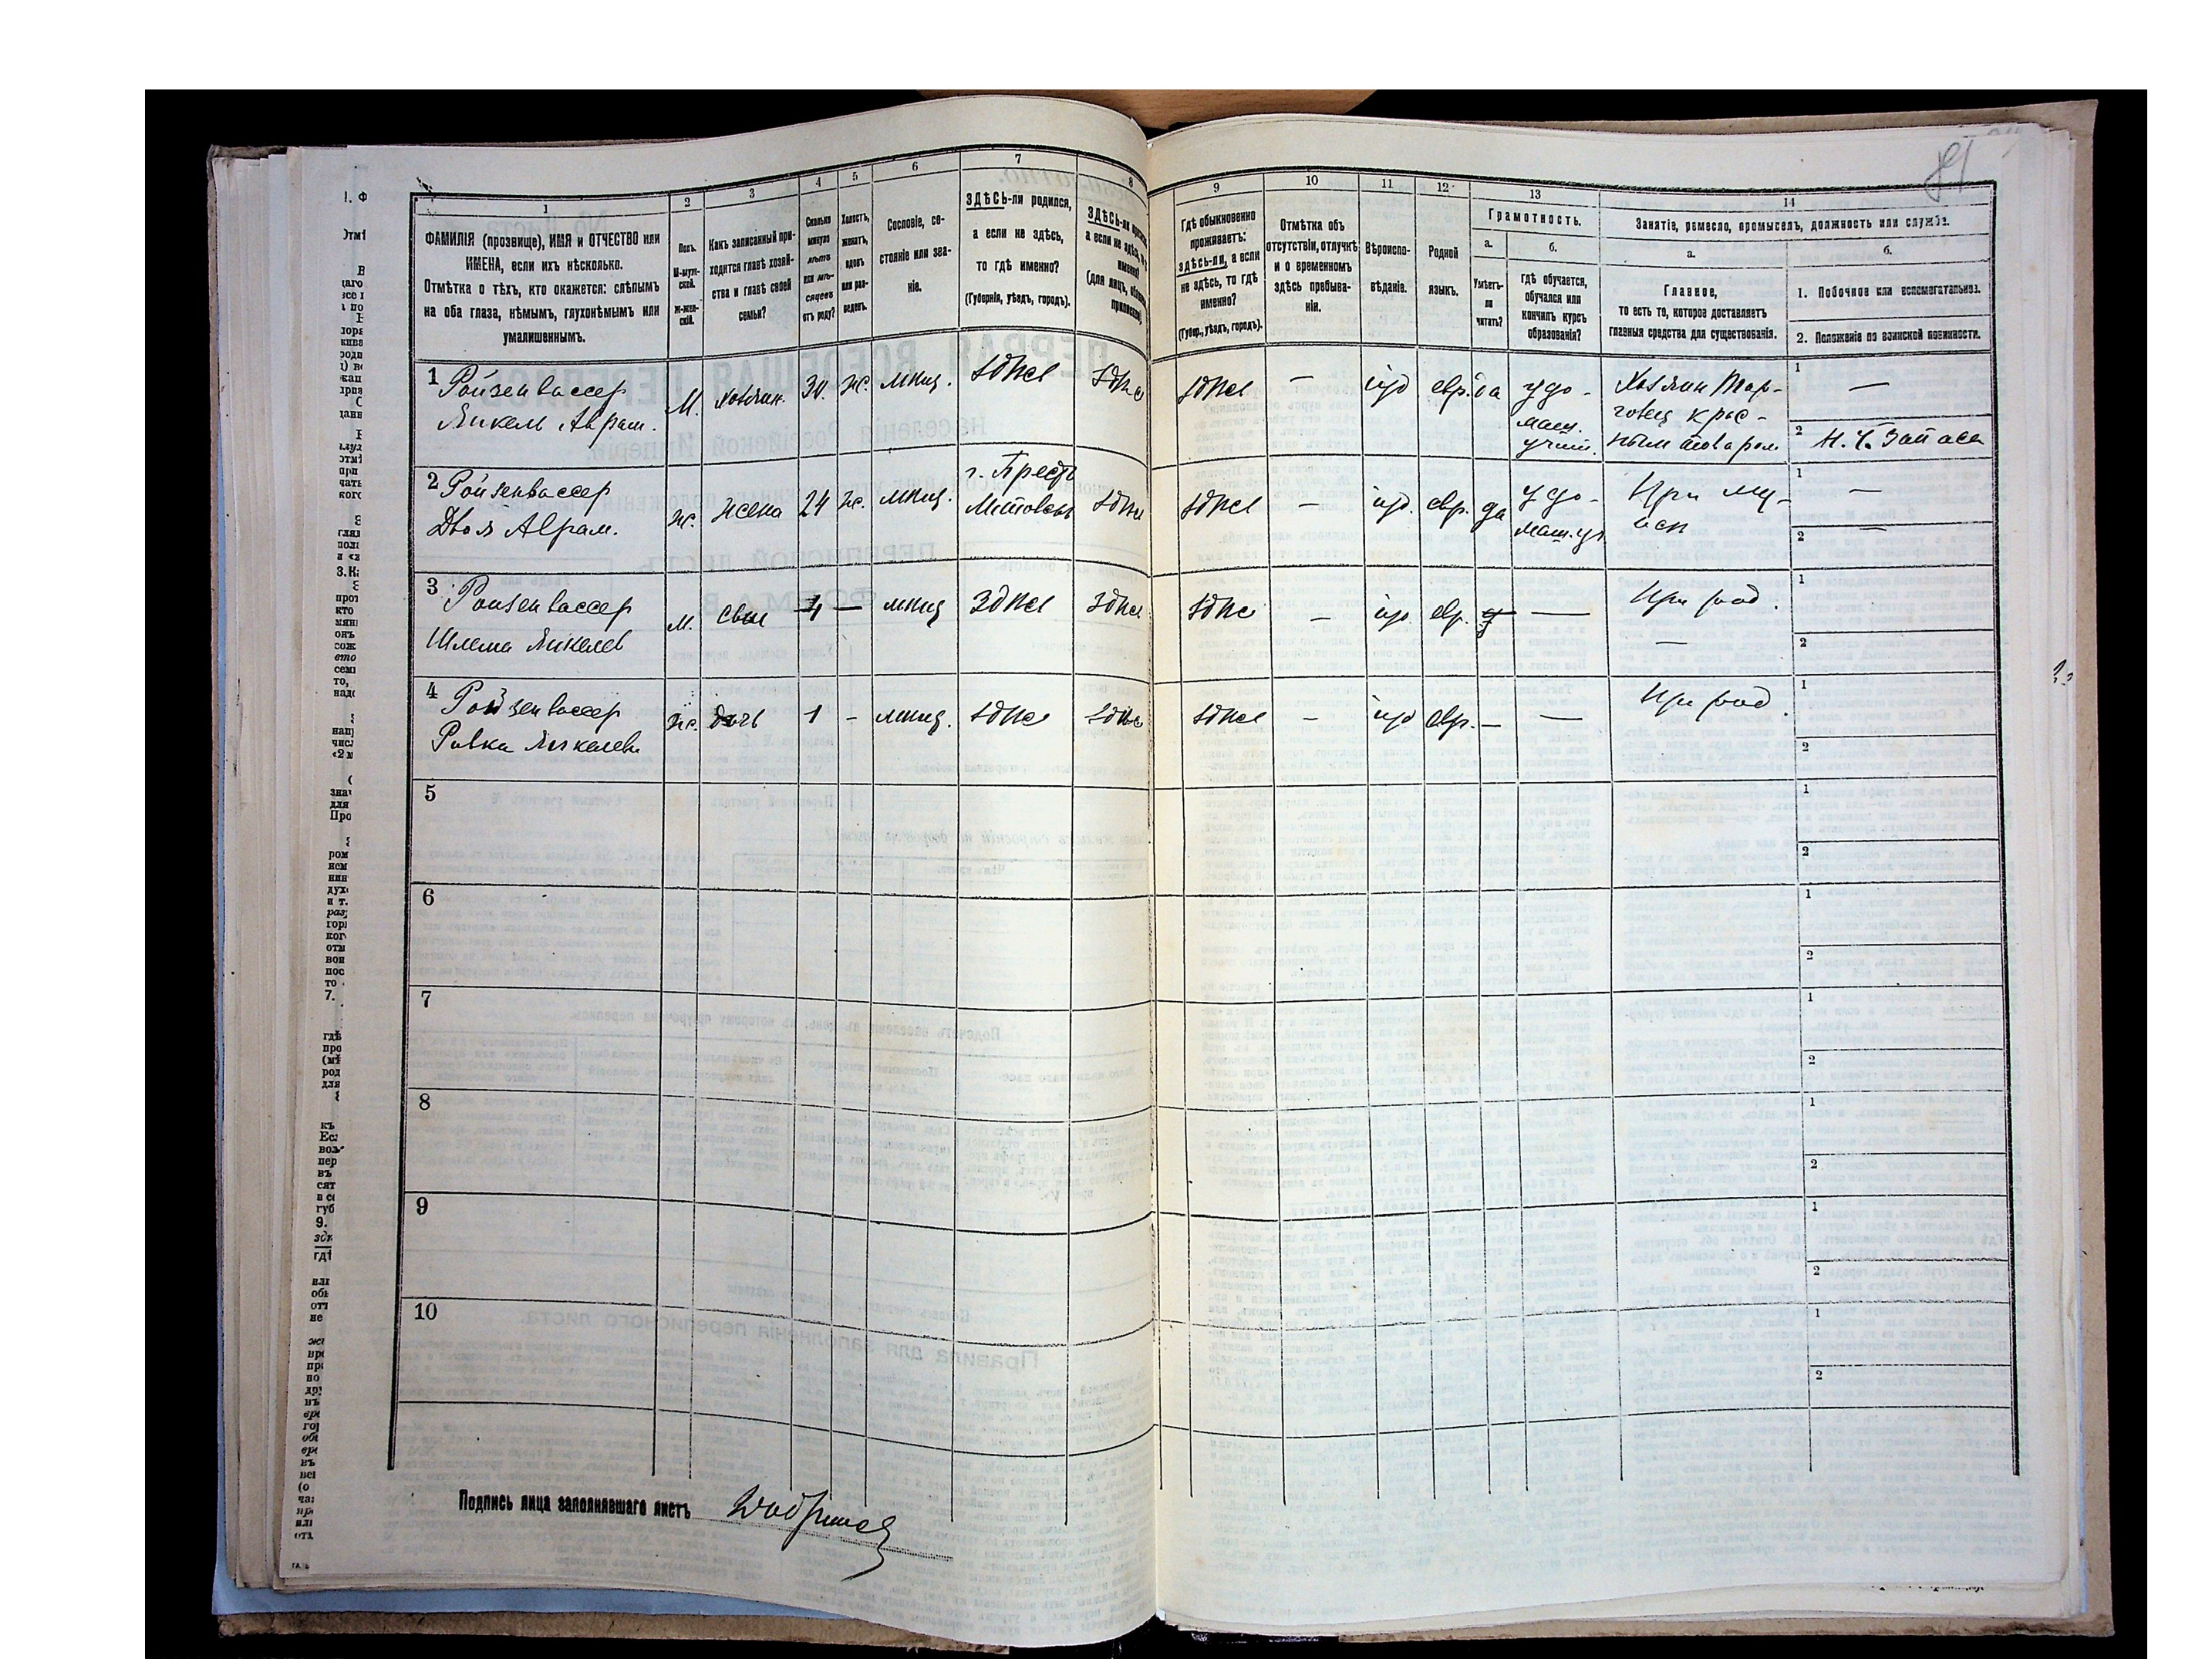 81
1
2
3
4
5
6
7
8
ФАМИЛІЯ (прозвище), ИМЯ и ОТЧЕСТВО или
ИМЕНА, если ихъ нѣсколько.
Отмѣтка о тѣхъ, кто окажется: слѣпымъ
на оба глаза, нѣмымъ, глухонѣмымъ или
умалишеннымъ.
Полъ.
М-муж-
ской.
Ж-жен-
скій.
Какъ записанный при-
ходится главѣ хозяй-
ства и главѣ своей
семьи?
Сколько
минуло
лѣтъ
или мѣ-
сяцевъ
отъ роду?
Холостъ,
женатъ,
вдовъ
или раз-
веденъ.
Сословіе, со-
стояніе или зва-
ніе.
ЗДѢСЬ-ли родился,
а если не здѣсь,
то гдѣ именно?
(Губернія, уѣздъ, городъ).
ЗДѢСЬ-ли
а если не здѣсь,
именно?
(для лицъ,
9
10
11
12
13
14
Гдѣ обыкновенно
проживаетъ:
здѣсь-ли, а если
не здѣсь, то гдѣ
именно?
(Губер., уѣздъ, городъ).
Отмѣтка объ
отсутствіи, отлучкѣ
и о временномъ
здѣсь пребыва-
ніи.
Вѣроиспо-
вѣданіе.
Родной
языкъ.
Грамотность.
а.
Умѣетъ-
ли
читать?
б.
гдѣ обучается,
обучался или
кончилъ курсъ
образованія?
Занятіе, ремесло, промыселъ, должность или служба.
а.
Главное,
то есть то, которое доставляетъ
главныя средства для существованія.
б.
1. Побочное или вспомогательное.
2. Положеніе по воинской повинности.
1 Ройзенвассер
Янкель Аврам.
М. хозяин. 30. ж. мѣщ. здѣсь здѣсь здѣсь — іуд евр. да
у до-
маш.
учит.
Хозяин Тор-
говец крас-
ным товаром
1 —
2 Н. Ч. Запаса
2 Ройзенвассер
Двоя Аврам.
ж. жена 24 ж. мѣщ.
г. Брест
Литовск
здѣсь здѣсь — іуд. евр. да
у до-
маш. уч.
При му-
жѣ
1 —
2 —
3 Ройзенвассер
Шлема Янкелев
м. сын 4 — мѣщ здѣсь здѣсь здѣсь — іуд. евр. — При род.
—
1
2
4 Ройзенвассер
Ривка Янкелева
ж. дочь 1 - мѣщ. здѣсь здѣсь здѣсь — іуд евр. — — При род.
1
2
5
1
2
6
1
2
7
1
2
8
1
2
9
1
2
10
1
2
Подпись лица заполнявшаго листъ